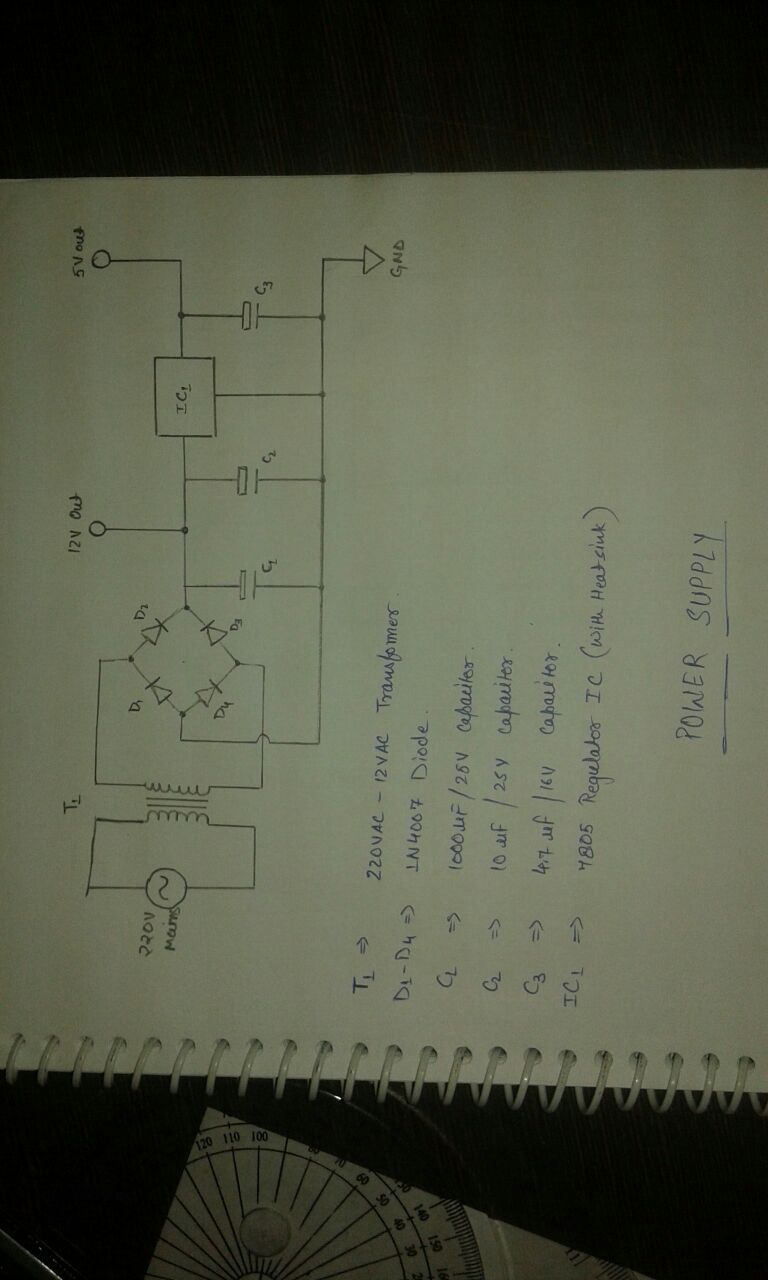 T1
220V
mains
D1
D2
D3
D4
12V Out
5V out
C1
C2
IC1
C3
GND
T1 ⇒ 220VAC - 12VAC Transformer.
D1-D4 ⇒ 1N4007 Diode.
C1 ⇒ 1000uF/25V Capacitor.
C2 ⇒ 10uf/25V Capacitor.
C3 ⇒ 4.7uf/16V Capacitor.
IC1 ⇒ 7805 Regulator IC (With Heatsink)
POWER SUPPLY
120 110 100